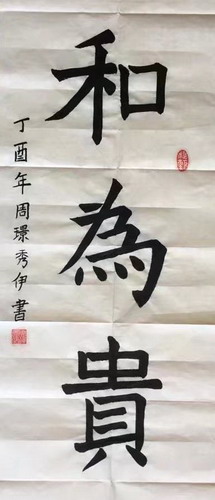 和為貴
丁酉年周璟秀伊書